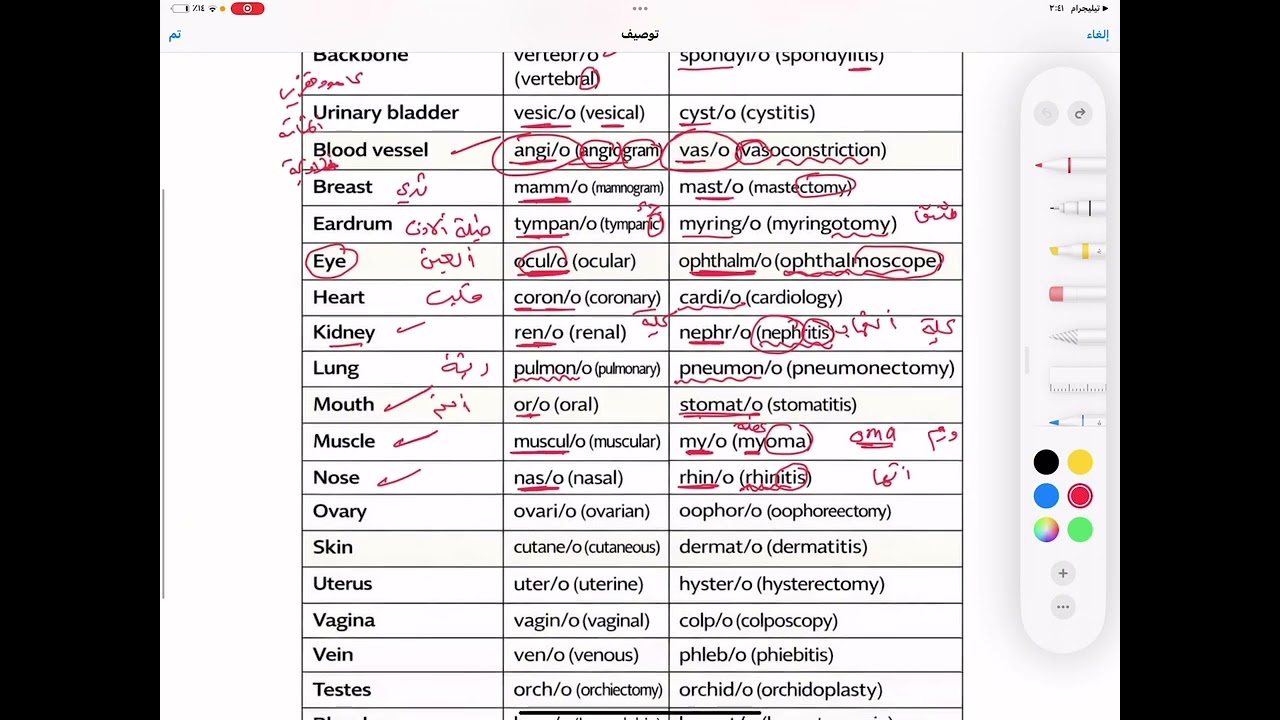 ٪١٤
تيليجرام ٢:٤١
تم
توصيف
إلغاء
Backbone vertebr/o spondyl/o (spondylitis)
(vertebral)
Urinary bladder vesic/o (vesical) cyst/o (cystitis)
Blood vessel angi/o (angiogram) vas/o (vasoconstriction)
Breast ثدي mamm/o (mamnogram) mast/o (mastectomy)
Eardrum tympan/o (tympanic) myring/o (myringotomy)
Eye العين ocul/o (ocular) ophthalm/o (ophthalmoscope)
Heart قلب coron/o (coronary) cardi/o (cardiology)
Kidney ren/o (renal) كلية nephr/o (nephritis) التهاب كلية
Lung رئة pulmon/o (pulmonary) pneumon/o (pneumonectomy)
Mouth or/o (oral) stomat/o (stomatitis)
Muscle muscul/o (muscular) my/o (myoma) oma ورم
Nose nas/o (nasal) rhin/o (rhinitis)
Ovary ovari/o (ovarian) oophor/o (oophoreectomy)
Skin cutane/o (cutaneous) dermat/o (dermatitis)
Uterus uter/o (uterine) hyster/o (hysterectomy)
Vagina vagin/o (vaginal) colp/o (colposcopy)
Vein ven/o (venous) phleb/o (phiebitis)
Testes orch/o (orchiectomy) orchid/o (orchidoplasty)